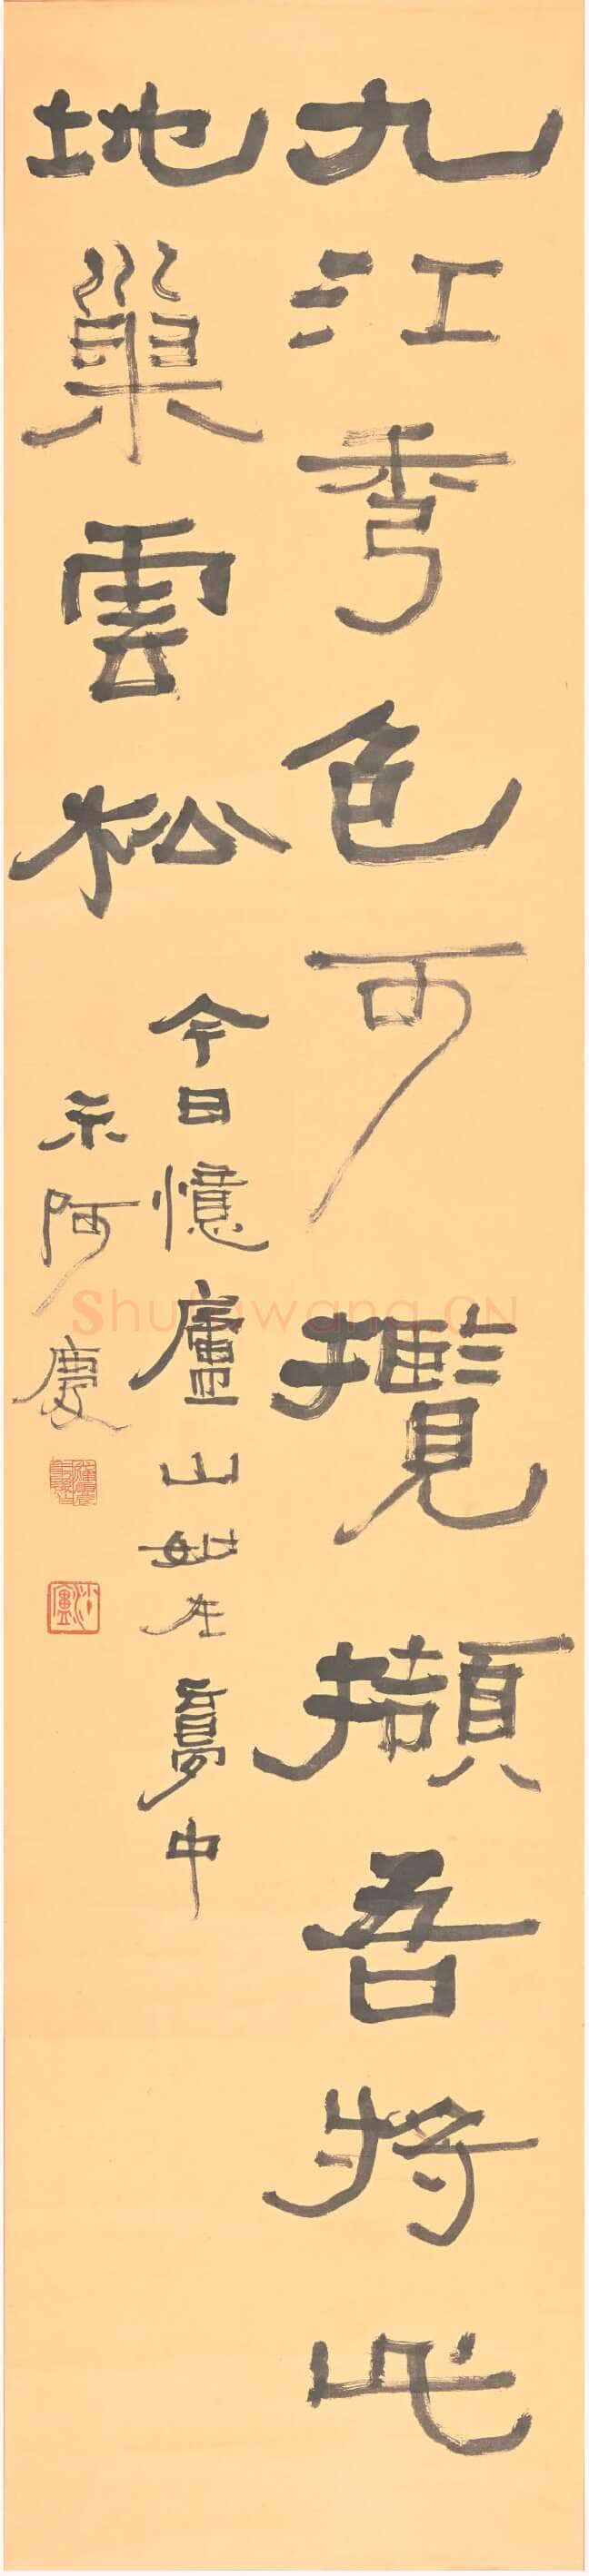 九江秀色可攬擷吾將此
地巢雲松
今日憶廬山如在夢中
示阿慶
沙盦
Shufawang.CN